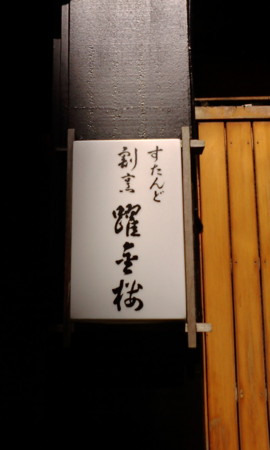 すたんど
割烹 躍金楼